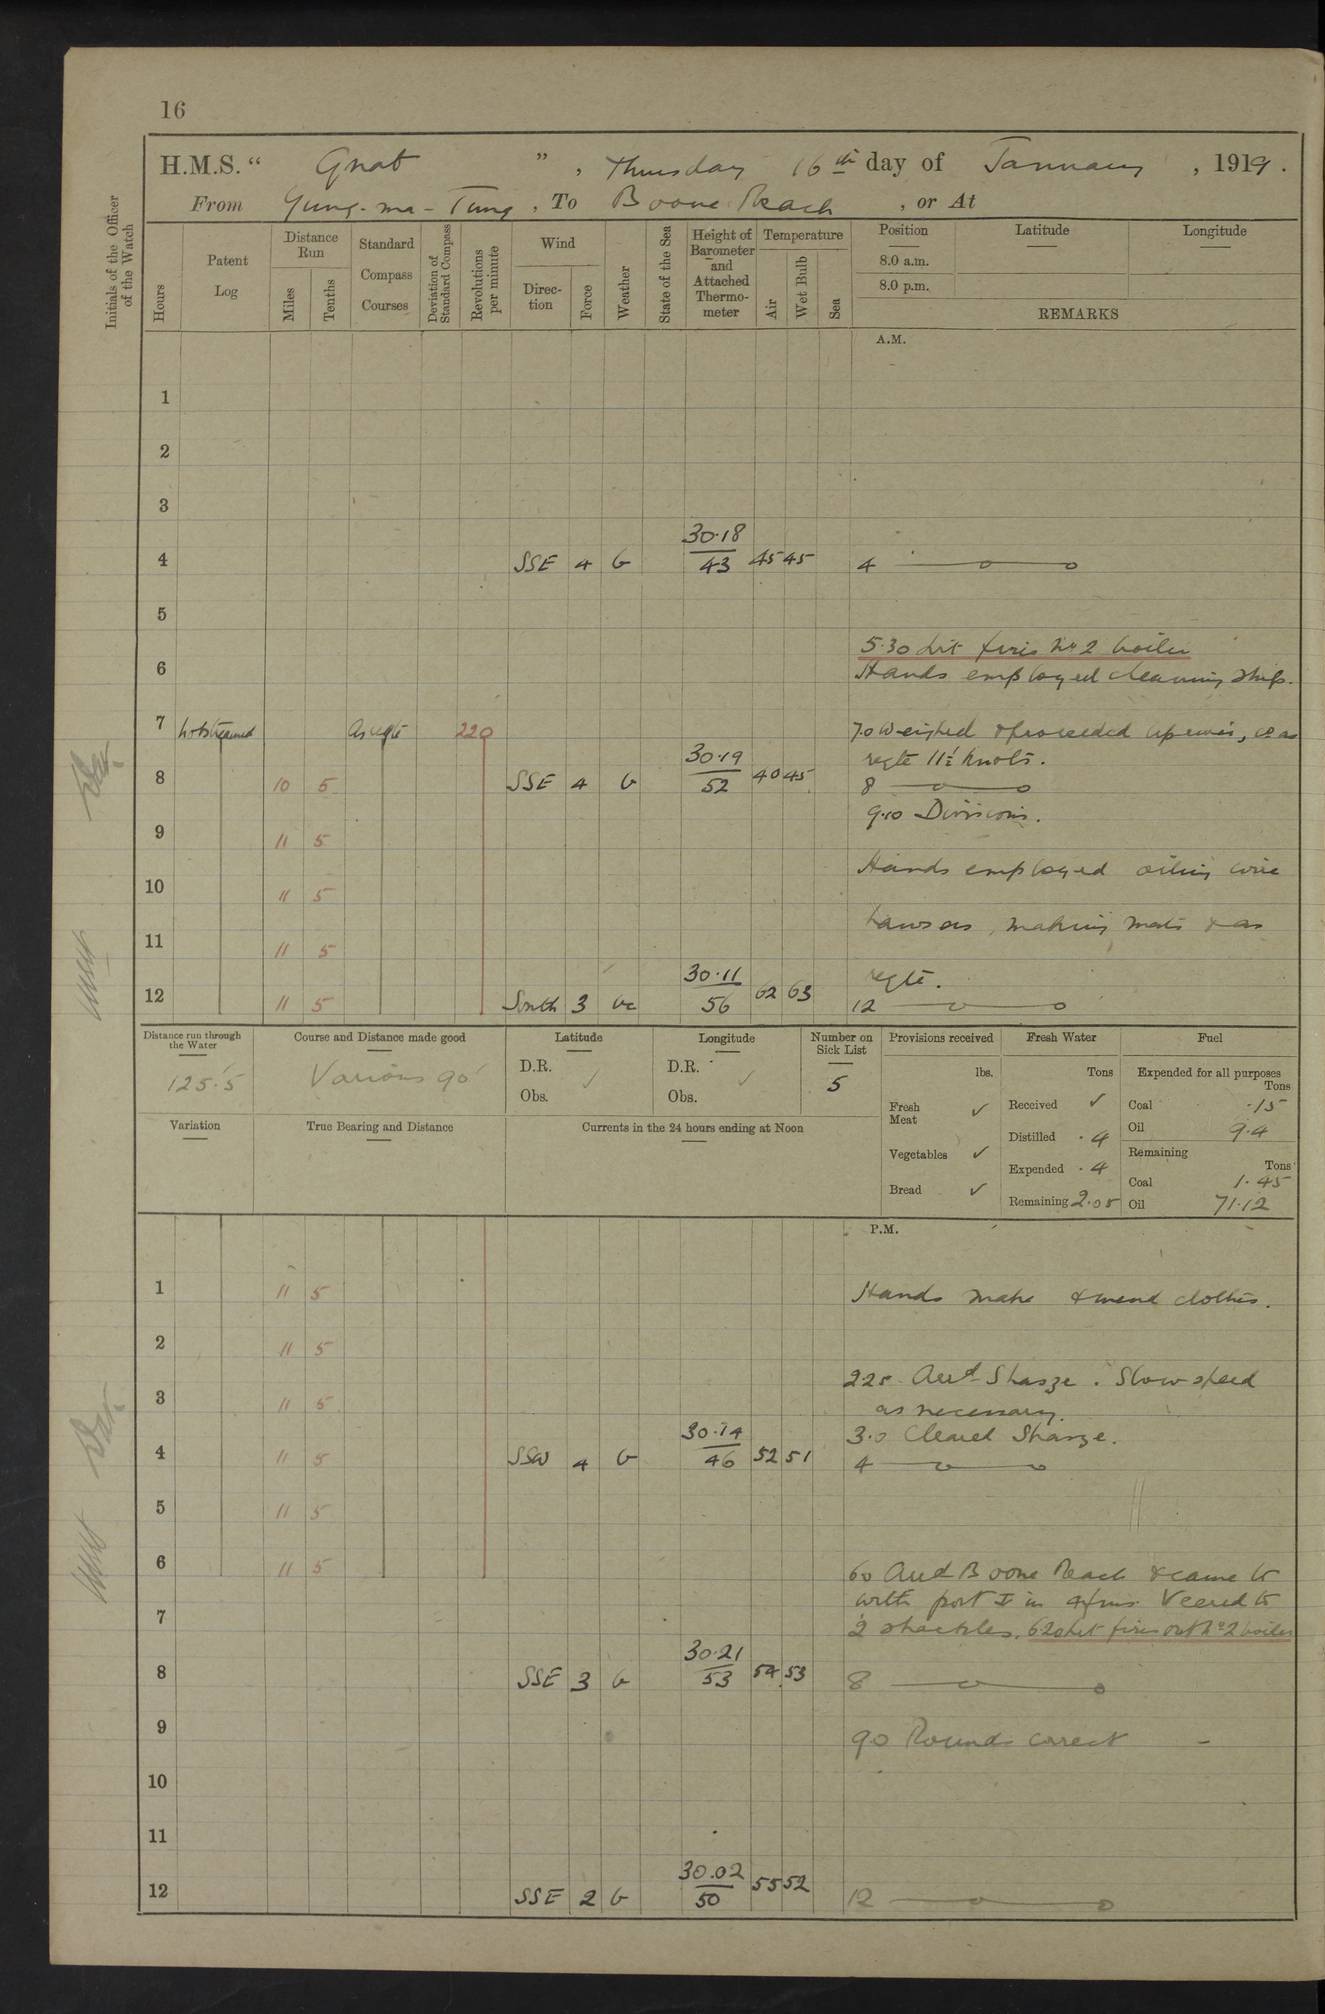 16
H.M.S. “ Gnat ” , Thursday 16th day of January , 1919 .
From Yung-ma-Tung , To Boone Reach , or At
Initials of the Officer of the Watch
Hours
Patent Log
Distance Run
Miles
Tenths
Standard Compass Courses
Deviation of Standard Compass
Revolutions per minute
Wind
Direc-tion
Force
Weather
State of the Sea
Height of Barometer and Attached Thermo-meter
Temperature
Air
Wet Bulb
Sea
Position
Latitude
Longitude
8.0 a.m.
8.0 p.m.
REMARKS
A.M.
1
2
3
4 SSE 4 b 30.18 43 45 45 4
5
5.30 Lit fires No 2 boiler
6 Hands employed cleaning ship.
7 Not streamed As reqte 220 7.0 Weighed & proceeded up river, co as
reqte 11½ knots.
8 10 5 SSE 4 b 30.19 52 40 45 8
9.10 Divisions.
9 11 5
Hands employed oiling wire
10 11 5
hawsers, making mats & as
11 11 5
reqte.
12 11 5 South 3 bc 30.11 56 62 63 12
Distance run through the Water
125.5
Course and Distance made good
Various 90'
Latitude
D.R.
Obs.
Longitude
D.R.
Obs.
Number on Sick List
5
Provisions received
lbs.
Fresh Meat ✓
Vegetables ✓
Bread ✓
Fresh Water
Tons
Received ✓
Distilled .4
Expended .4
Remaining 2.05
Fuel
Expended for all purposes
Tons
Coal .15
Oil 9.4
Remaining
Tons
Coal 1.45
Oil 71.12
Variation
True Bearing and Distance
Currents in the 24 hours ending at Noon
P.M.
1 11 5 Hands make & mend clothes.
2 11 5
2.25 Arrd Shasze. Slow speed
3 11 5 as necessary.
3.0 Cleared Shasze.
4 11 5 SSW 4 b 30.14 46 52 51 4
5 11 5
6 11 5 6.0 Arrd Boone Reach & came to
with port ⚓ in 4 fms. Veered to
7 2 shackles. 6.20 Let fires out No 2 boiler
8 SSE 3 b 30.21 53 54 53 8
9 9.0 Rounds correct
10
11
12 SSE 2 b 30.02 50 55 52 12